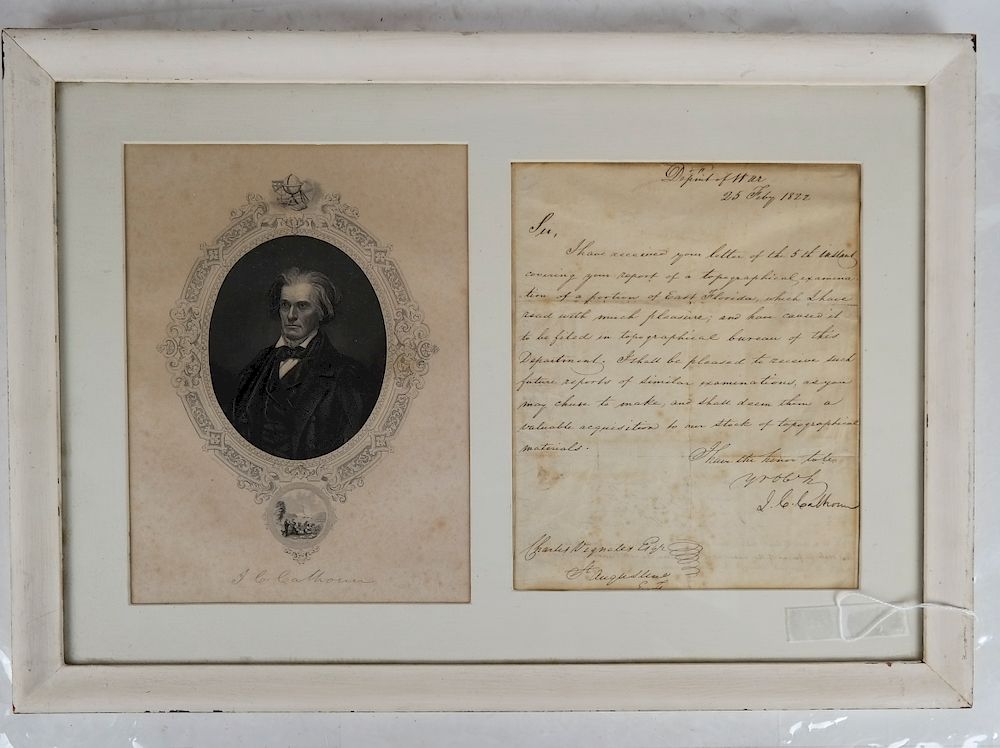 J. C. Calhoun
Depmt of War
25 Feby 1822
Sir,
I have received your letter of the 5th instant
covering your report of a topographical examina
tion of a portion of East Florida, which I have
read with much pleasure; and have caused it
to be filed in topographical bureau of this
Department. I shall be pleased to receive such
future reports of similar examinations, as you
may chuse to make, and shall deem them a
valuable acquisition to our stock of topographical
materials.
I have the honor to be
yr ob
J. C. Calhoun
Charles Vignoles Esqr
St Augustine